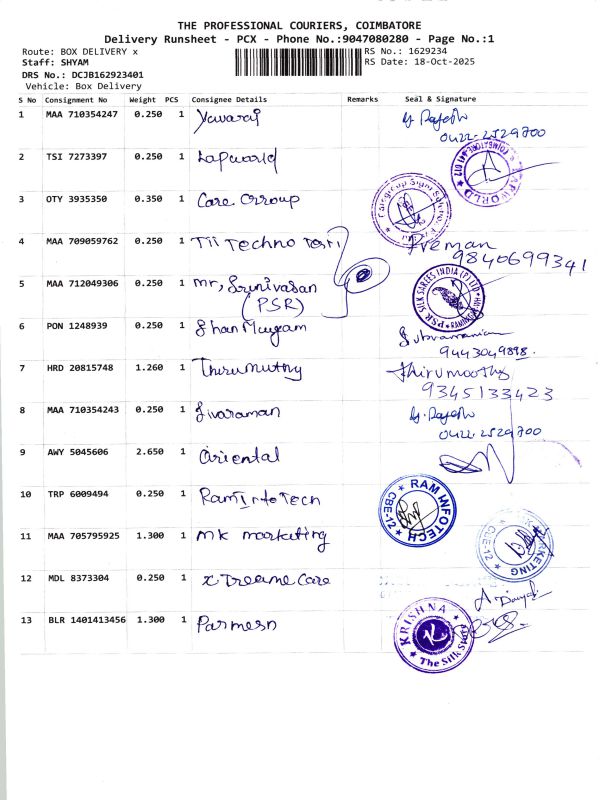 THE PROFESSIONAL COURIERS, COIMBATORE
Delivery Runsheet - PCX - Phone No.:9047080280 - Page No.:1
Route: BOX DELIVERY x RS No.: 1629234
Staff: SHYAM RS Date: 18-Oct-2025
DRS No.: DCJB162923401
Vehicle: Box Delivery
S No Consignment No Weight PCS Consignee Details Remarks Seal & Signature
1 MAA 710354247 0.250 1 Yuvaraj G. Rajesh
0422-2529700
2 TSI 7273397 0.250 1 Lapworld LAPWORLD
3 OTY 3935350 0.350 1 Care Group
4 MAA 709059762 0.250 1 TII Techno Preman
9840699341
5 MAA 712049306 0.250 1 Mr, Srinivasan
(PSR) PSR SILK SAREES INDIA (P) LTD
6 PON 1248939 0.250 1 Shan Mugam Subramanian
9443049898.
7 HRD 20815748 1.260 1 Thirumuthy thirumoothy
9345133423
8 MAA 710354243 0.250 1 Sivaraman G. Rajesh
0422-2529700
9 AWY 5045606 2.650 1 Oriental
10 TRP 6009494 0.250 1 Ram Info Tech RAM INFOTECH CBE-12
11 MAA 705795925 1.300 1 MK marketing
12 MDL 8373304 0.250 1 x Treame Care
13 BLR 1401413456 1.300 1 Parmesn KRISHNA The Silk